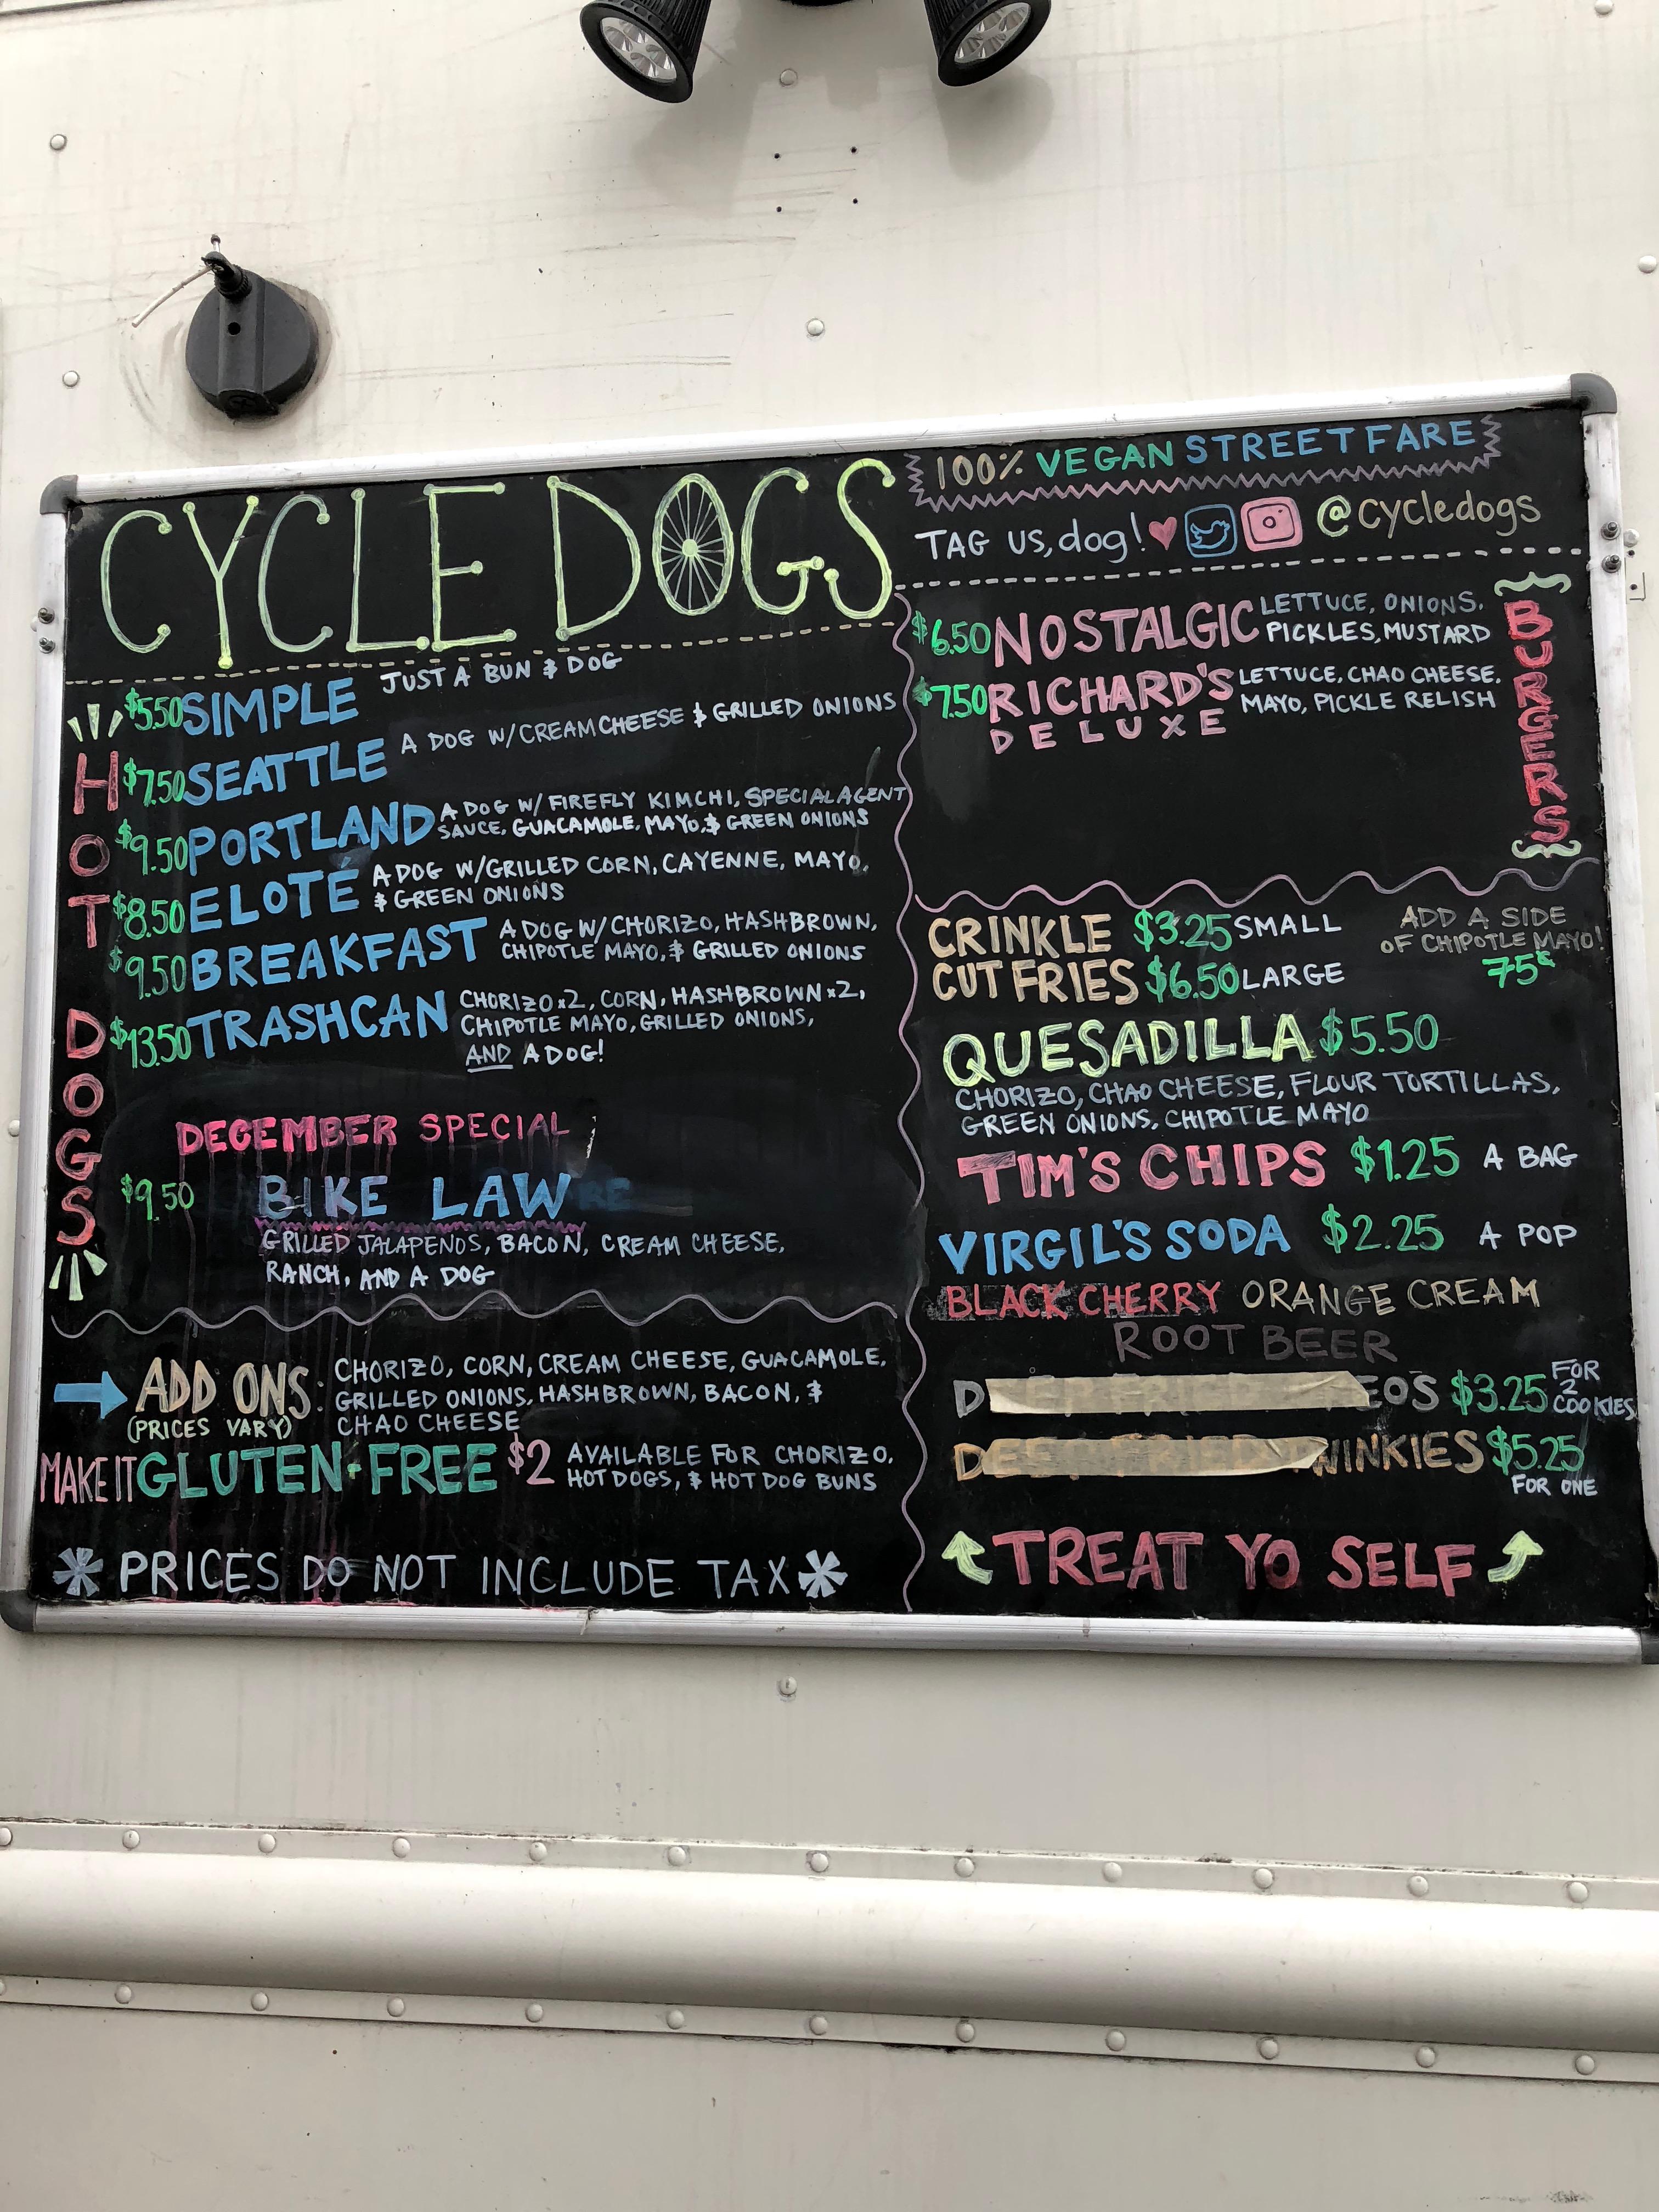 CYCLE DOGS
100% VEGAN STREET FARE
TAG US, dog! @cycledogs
HOT DOGS
$5.50 SIMPLE JUST A BUN & DOG
$7.50 SEATTLE A DOG W/CREAM CHEESE & GRILLED ONIONS
$9.50 PORTLAND A DOG W/ FIREFLY KIMCHI, SPECIAL AGENT
SAUCE, GUACAMOLE, MAYO, & GREEN ONIONS
$8.50 ELOTE A DOG W/GRILLED CORN, CAYENNE, MAYO,
& GREEN ONIONS
$9.50 BREAKFAST A DOG W/CHORIZO, HASHBROWN,
CHIPOTLE MAYO, & GRILLED ONIONS
$13.50 TRASHCAN CHORIZO x2, CORN, HASHBROWN x2,
CHIPOTLE MAYO, GRILLED ONIONS,
AND A DOG!
DECEMBER SPECIAL
$9.50 BIKE LAW
GRILLED JALAPENOS, BACON, CREAM CHEESE,
RANCH, AND A DOG
ADD ONS: CHORIZO, CORN, CREAM CHEESE, GUACAMOLE,
(PRICES VARY) GRILLED ONIONS, HASHBROWN, BACON, &
CHAO CHEESE
MAKE IT GLUTEN-FREE $2 AVAILABLE FOR CHORIZO,
HOT DOGS, & HOT DOG BUNS
* PRICES DO NOT INCLUDE TAX *
BURGERS
$6.50 NOSTALGIC LETTUCE, ONIONS,
PICKLES, MUSTARD
$7.50 RICHARD'S LETTUCE, CHAO CHEESE,
DELUXE MAYO, PICKLE RELISH
CRINKLE $3.25 SMALL
CUT FRIES $6.50 LARGE
ADD A SIDE
OF CHIPOTLE MAYO!
75¢
QUESADILLA $5.50
CHORIZO, CHAO CHEESE, FLOUR TORTILLAS,
GREEN ONIONS, CHIPOTLE MAYO
TIM'S CHIPS $1.25 A BAG
VIRGIL'S SODA $2.25 A POP
BLACK CHERRY ORANGE CREAM
ROOT BEER
D EOS $3.25 FOR
2
COOKIES
DEEP FRIED TWINKIES $5.25
FOR ONE
TREAT YO SELF